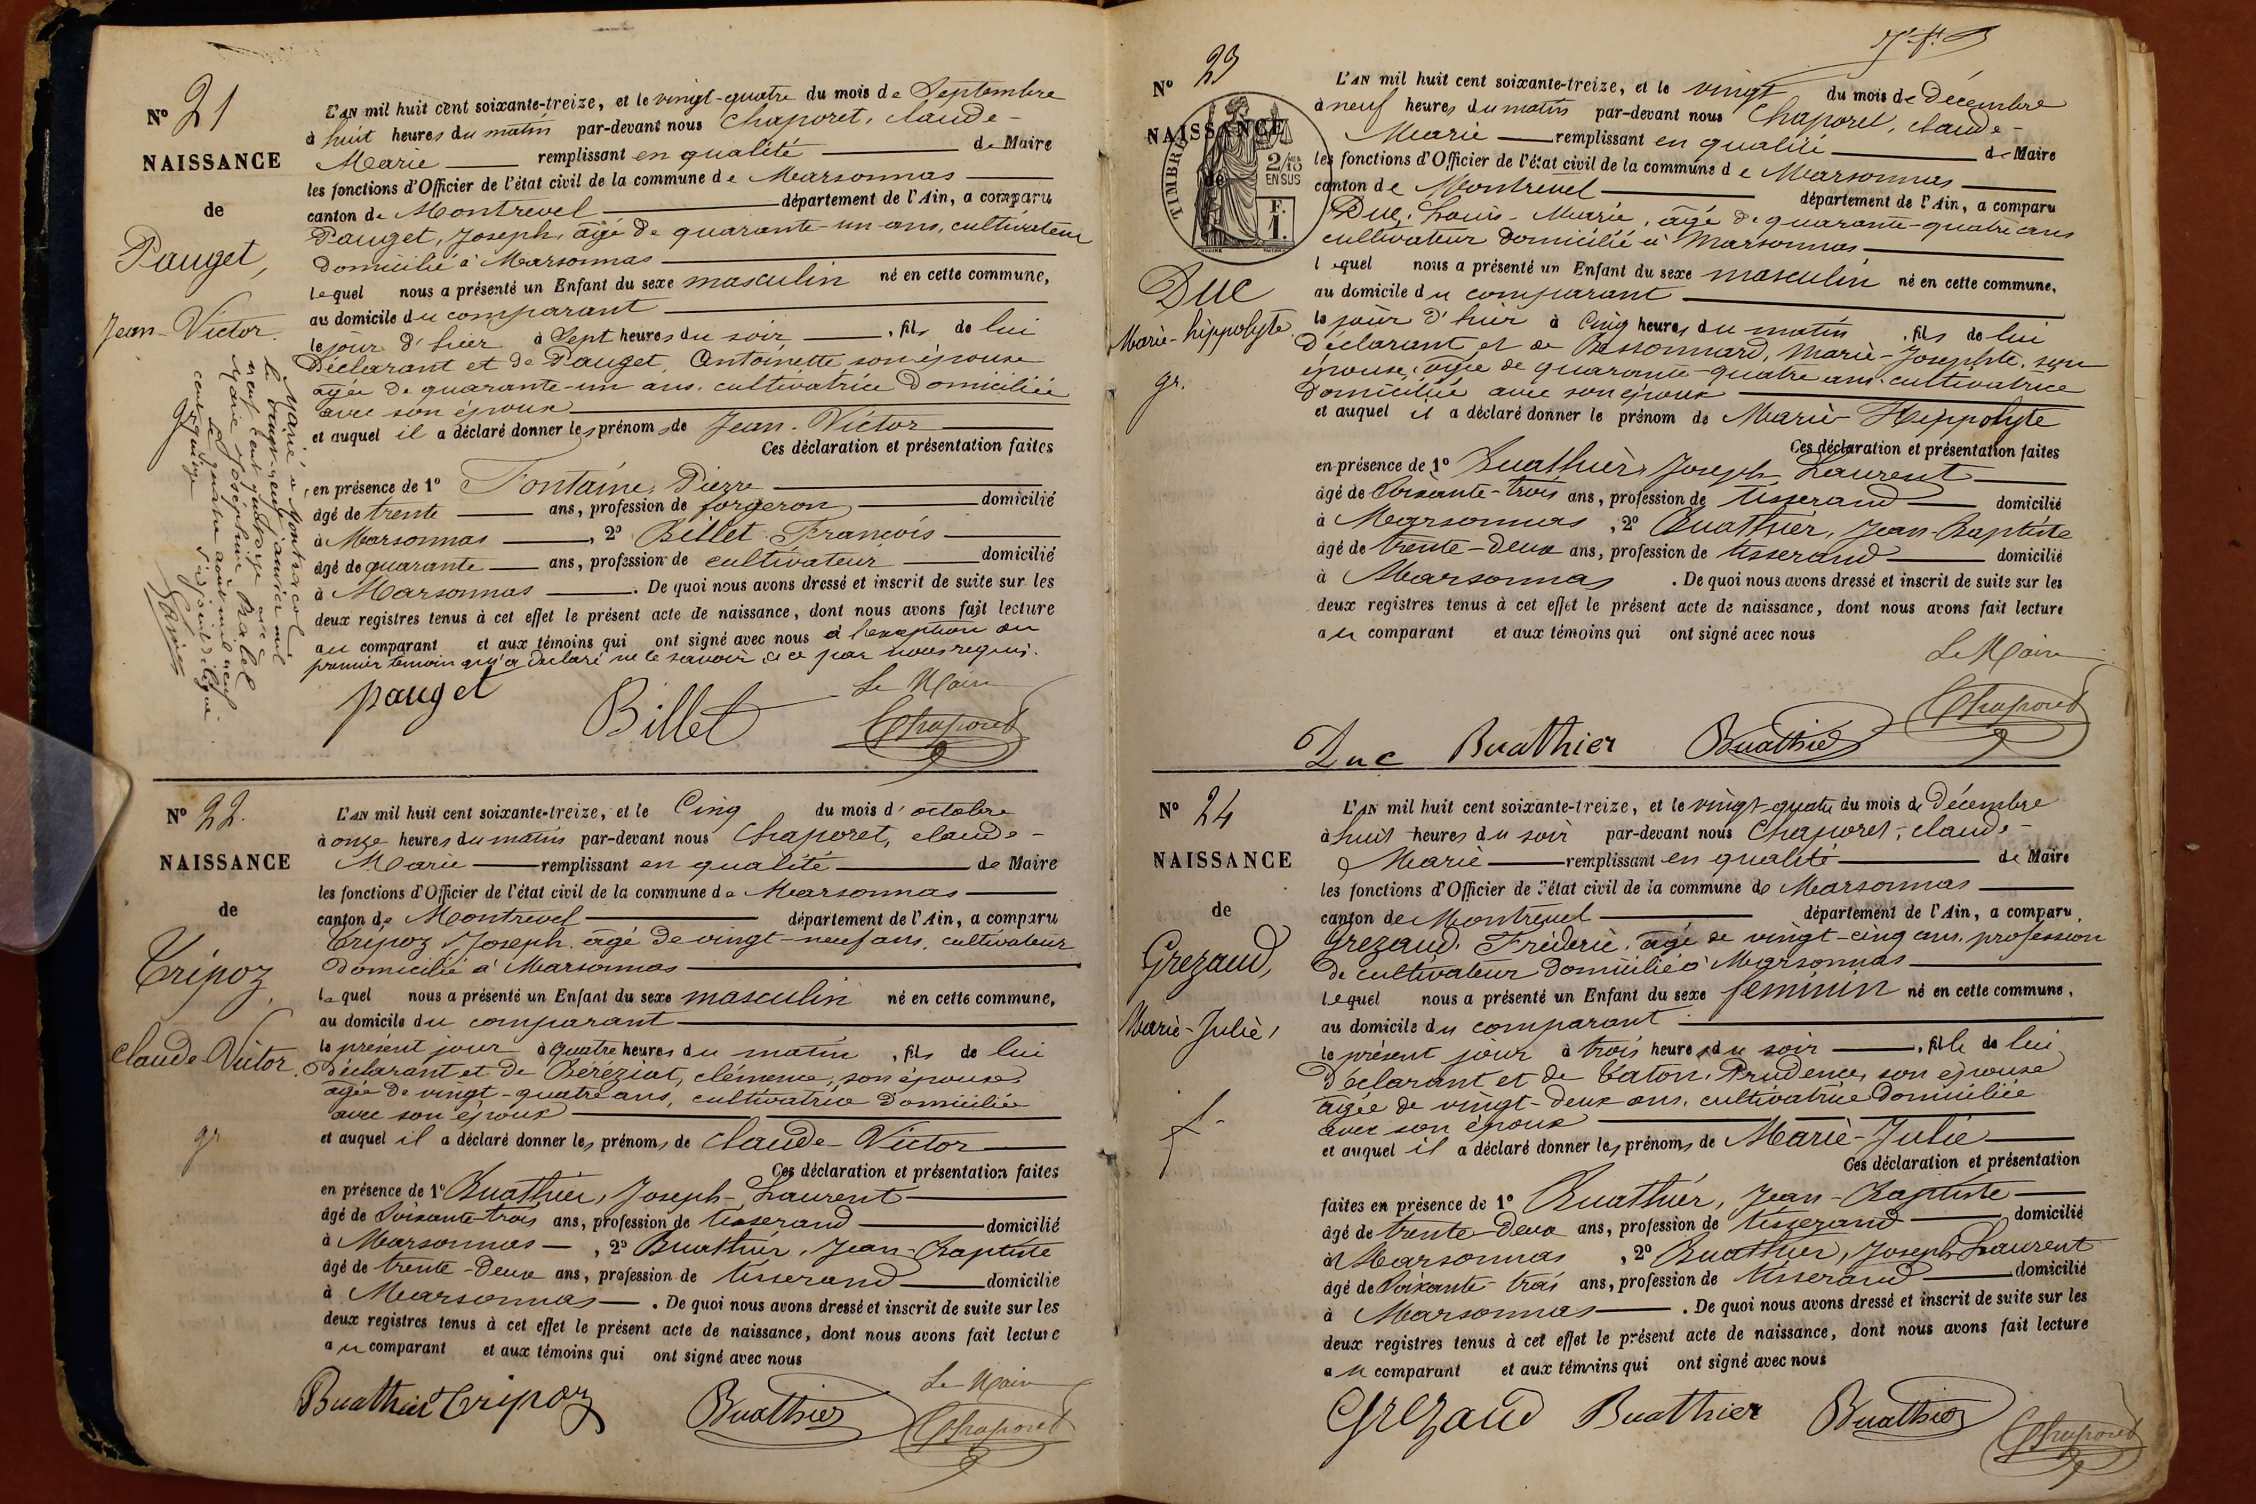 Nº 21
NAISSANCE
de
Pauget,
Jean-Victor.
Marié à Montracol
le vingt-neuf janvier mil
neuf cent quatorze avec
Marie Joséphine Pralel
Le quatre août mil neuf
cent quinze
L'AN mil huit cent soixante-treize, et le vingt-quatre du mois de Septembre
à huit heures du matin par-devant nous Chaporet, claude-
Marie remplissant en qualité de Maire
les fonctions d'Officier de l'état civil de la commune de Marsonnas
canton de Montrevel département de l'Ain, a comparu
Pauget, Joseph, âgé de quarante-un ans, cultivateur
domicilié à Marsonnas
lequel nous a présenté un Enfant du sexe masculin né en cette commune,
au domicile du comparant
le jour d'hier à Sept heures du soir, fils de lui
Déclarant et de Pauget, Antoinette son épouse
agée de quarante-un ans, cultivatrice Domiciliée
avec son époux
et auquel il a déclaré donner les prénoms de Jean-Victor
Ces déclaration et présentation faites
en présence de 1º Fontaine, Pierre
âgé de trente ans, profession de forgeron domicilié
à Marsonnas, 2º Billet François
âgé de quarante ans, profession de cultivateur domicilié
à Marsonnas. De quoi nous avons dressé et inscrit de suite sur les
deux registres tenus à cet effet le présent acte de naissance, dont nous avons fait lecture
au comparant et aux témoins qui ont signé avec nous à l'exception du
premier témoin qui a déclaré ne le savoir de ce par nous requis.
Le Maire
pauget Billet Chaporet
Nº 22.
NAISSANCE
de
Tripoz,
Claude-Victor.
gr
L'AN mil huit cent soixante-treize, et le Cinq du mois d'octobre
à onze heures du matin par-devant nous Chaporet, claude-
Marie remplissant en qualité de Maire
les fonctions d'Officier de l'état civil de la commune de Marsonnas
canton de Montrevel département de l'Ain, a comparu
Tripoz Joseph, âgé de vingt-neuf ans, cultivateur
domicilié à Marsonnas
lequel nous a présenté un Enfant du sexe masculin né en cette commune,
au domicile du comparant
le présent jour à quatre heures du matin, fils de lui
Déclarant et de Bereziat, clémence, son épouse,
agée de vingt-quatre ans, cultivatrice Domiciliée
avec son époux
et auquel il a déclaré donner les prénoms de Claude-Victor
Ces déclaration et présentation faites
en présence de 1º Buathier, Joseph-Laurent
âgé de Soixante-trois ans, profession de tisserand domicilié
à Marsonnas, 2º Buathier, Jean-Baptiste
âgé de trente-deux ans, profession de tisserand domicilié
à Marsonnas. De quoi nous avons dressé et inscrit de suite sur les
deux registres tenus à cet effet le présent acte de naissance, dont nous avons fait lecture
au comparant et aux témoins qui ont signé avec nous
Le Maire
Buathier Tripoz Buathier Chaporet
Nº 23
NAISSANCE
de
TIMBRE
2/10 EN SUS
F. 1.
Duc
Marie-hippolyte
gr.
L'AN mil huit cent soixante-treize, et le vingt du mois de décembre
à neuf heures du matin par-devant nous Chaporet, claude-
Marie remplissant en qualité de Maire
les fonctions d'Officier de l'état civil de la commune de Marsonnas
canton de Montrevel département de l'Ain, a comparu
Duc, Louis-Marie, âgé de quarante-quatre ans
cultivateur domicilié à Marsonnas
lequel nous a présenté un Enfant du sexe masculin né en cette commune,
au domicile du comparant
le jour d'hier à Cinq heures du matin, fils de lui
Déclarant et de Bessonnard, Marie-Josephte, son
épouse, âgée de quarante-quatre ans, cultivatrice
Domiciliée avec son époux
et auquel il a déclaré donner le prénom de Marie-Hippolyte
Ces déclaration et présentation faites
en présence de 1º Buathier, Joseph Laurent
âgé de Soixante-trois ans, profession de tisserand domicilié
à Marsonnas, 2º Buathier, Jean-Baptiste
âgé de trente-deux ans, profession de tisserand domicilié
à Marsonnas. De quoi nous avons dressé et inscrit de suite sur les
deux registres tenus à cet effet le présent acte de naissance, dont nous avons fait lecture
au comparant et aux témoins qui ont signé avec nous
Le Maire
Duc Buathier Buathier Chaporet
Nº 24
NAISSANCE
de
Grezaud,
Marie-Julie,
f
L'AN mil huit cent soixante-treize, et le vingt-quatre du mois de décembre
à huit heures du soir par-devant nous Chaporet, claude-
Marie remplissant en qualité de Maire
les fonctions d'Officier de l'état civil de la commune de Marsonnas
canton de Montrevel département de l'Ain, a comparu
Grezaud, Fréderic, âgé de vingt-cinq ans, profession
de cultivateur domicilié à Marsonnas
lequel nous a présenté un Enfant du sexe feminin né en cette commune,
au domicile du comparant
le présent jour à trois heures du soir, fille de lui
Déclarant et de Caton, Prudence, son épouse
âgée de vingt-deux ans, cultivatrice Domiciliée
avec son époux
et auquel il a déclaré donner les prénoms de Marie-Julie
Ces déclaration et présentation
faites en présence de 1º Buathier, Jean-Baptiste
âgé de trente-deux ans, profession de tisserand domicilié
à Marsonnas, 2º Buathier, Joseph Laurent
âgé de Soixante-trois ans, profession de tisserand domicilié
à Marsonnas. De quoi nous avons dressé et inscrit de suite sur les
deux registres tenus à cet effet le présent acte de naissance, dont nous avons fait lecture
au comparant et aux témoins qui ont signé avec nous
Grezaud Buathier Buathier Chaporet